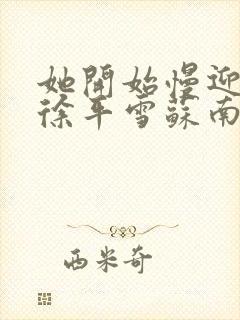 她開始慢迎
徐平雪蘇南
西米奇